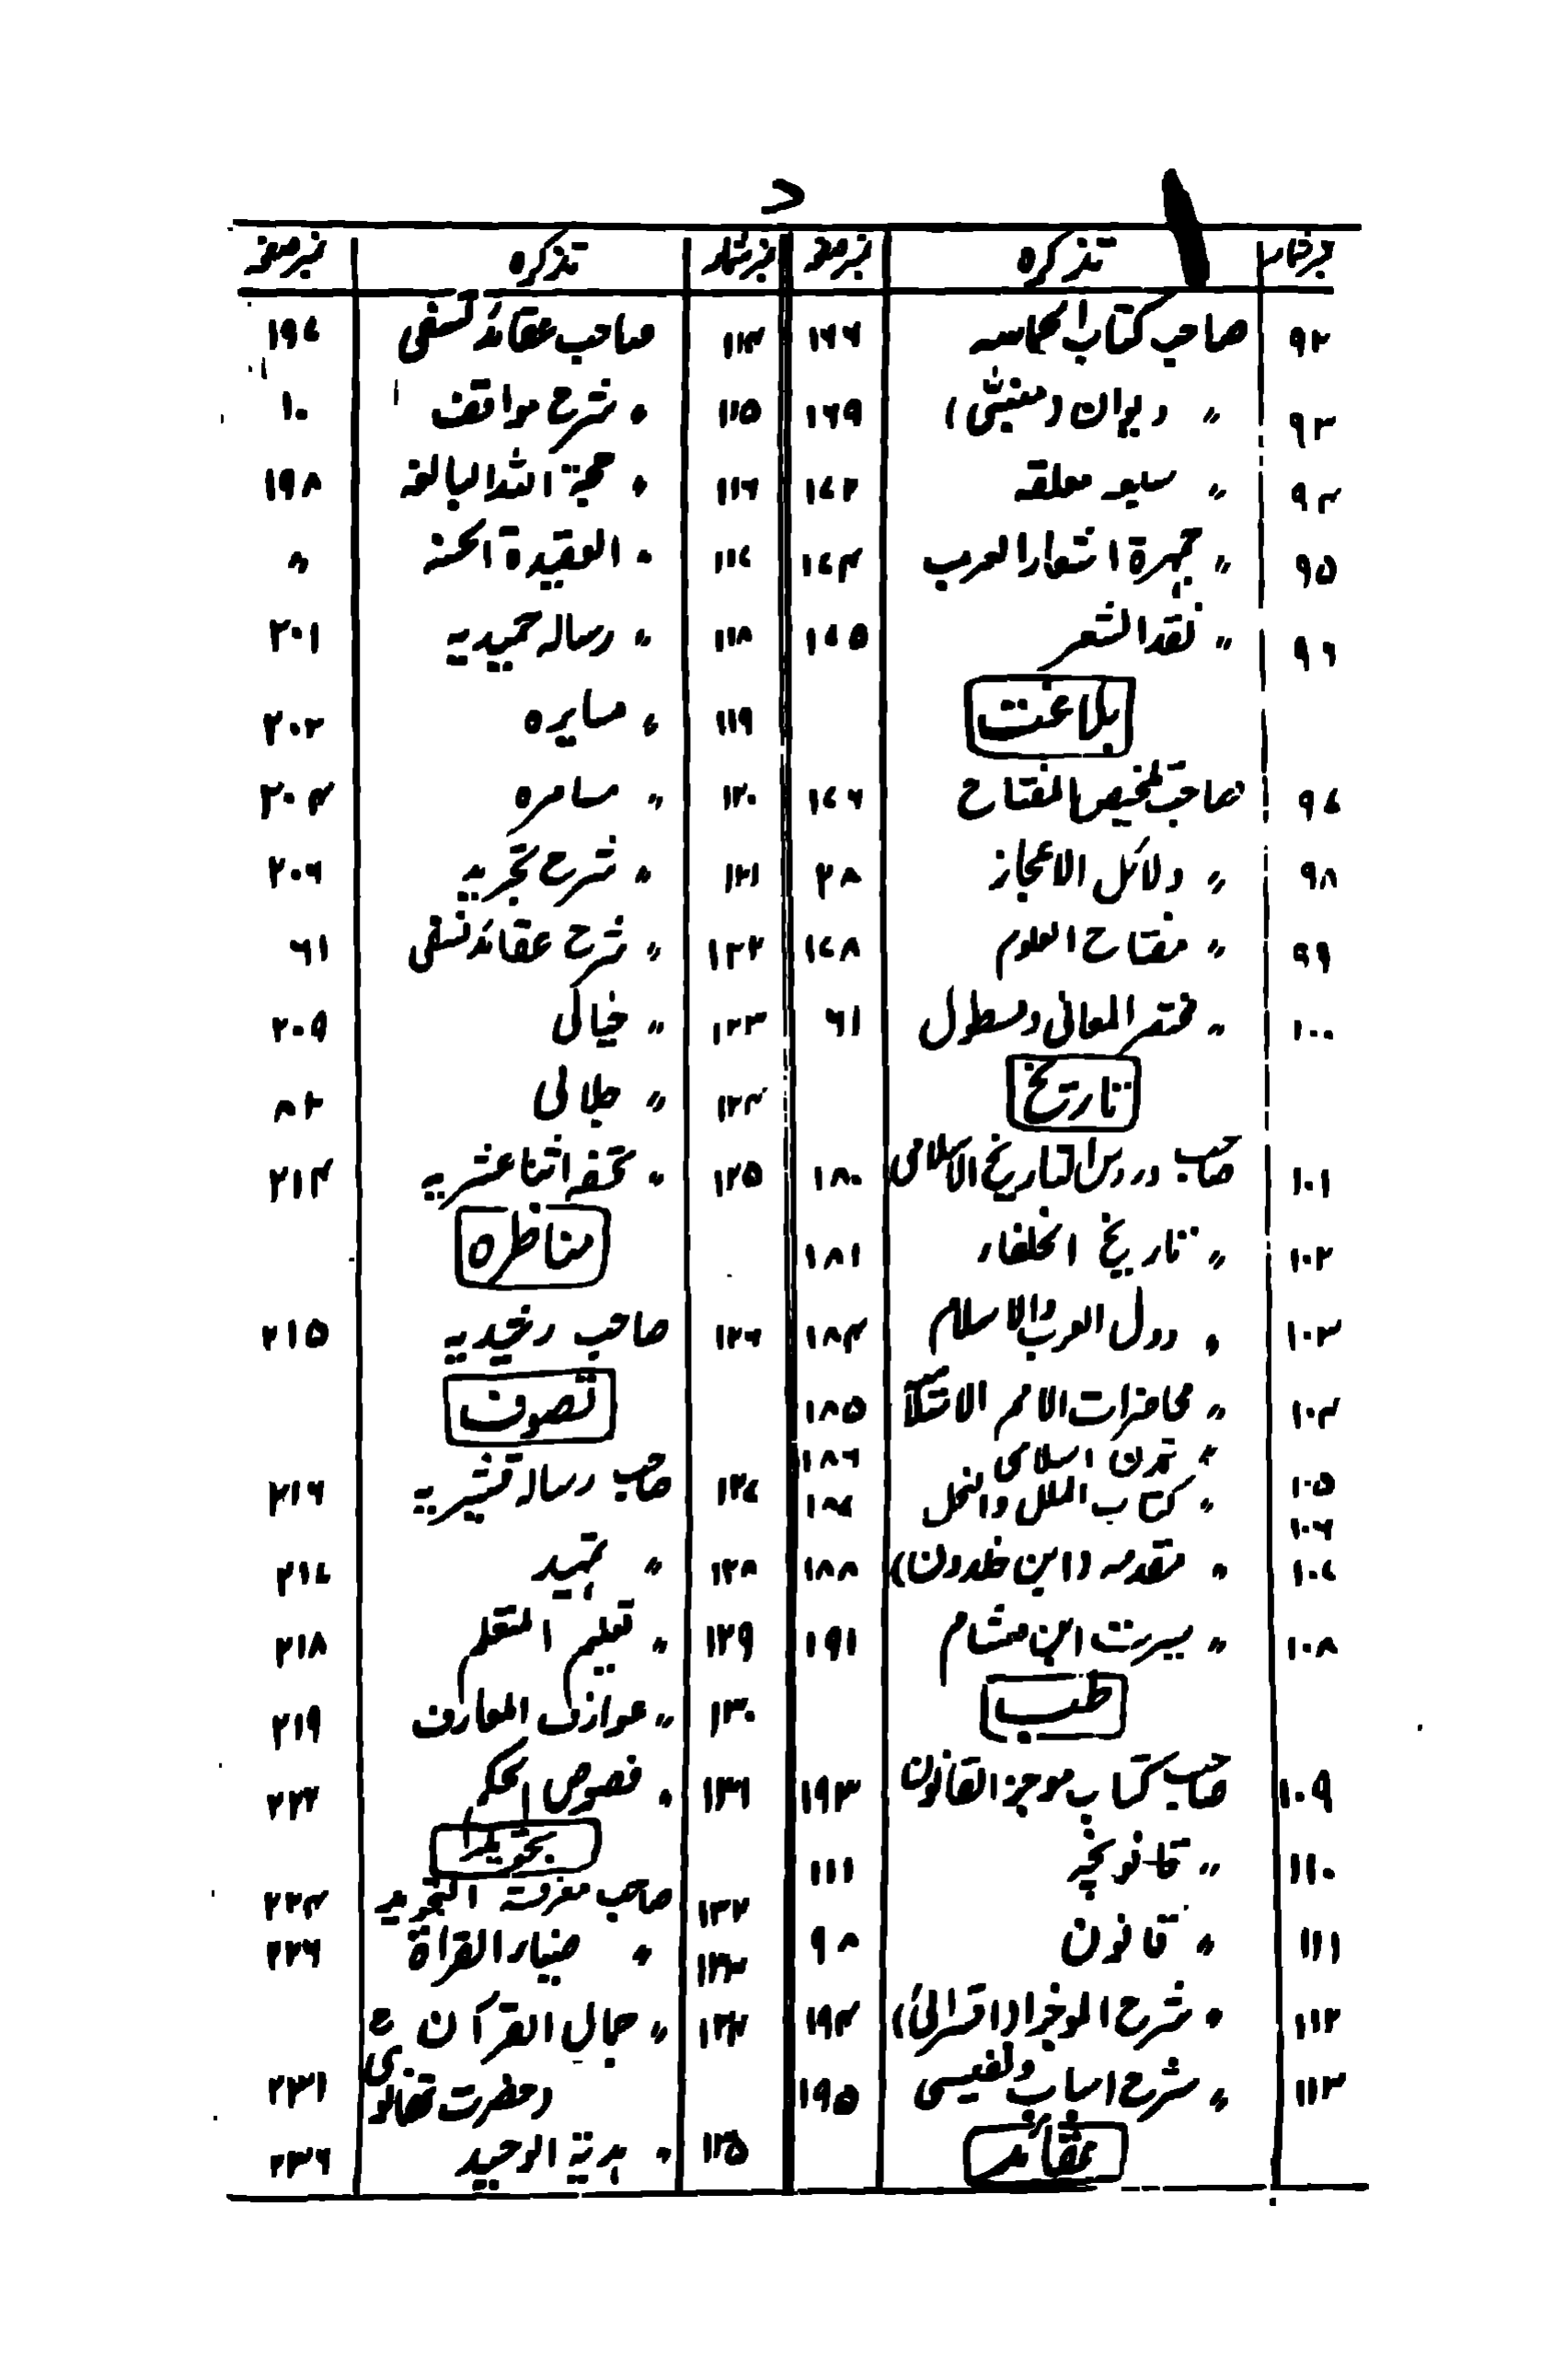 د
نمبرشمار تذکرہ نمبرصفحہ
۹۲ صاحب کتاب الحماسہ ۱۶۶
۹۳ 〃 دیوان (متنبی) ۱۶۹
۹۴ 〃 سبعہ معلقہ ۱۷۲
۹۵ 〃 جمہرۃ اشعار العرب ۱۷۴
۹۶ 〃 نقد الشعر ۱۷۵
بلاغت
۹۷ صاحب تلخیص المفتاح ۱۷۶
۹۸ 〃 دلائل الاعجاز ۲۸
۹۹ 〃 مفتاح العلوم ۱۷۸
۱۰۰ 〃 مختصر المعانی و مطول ۶۱
تاریخ
۱۰۱ صاحب دروس التاریخ الاسلامی ۱۸۰
۱۰۲ 〃 تاریخ الخلفاء ۱۸۱
۱۰۳ 〃 دول العرب والاسلام ۱۸۴
۱۰۴ 〃 محاضرات الامم الاسلا ۱۸۵
۱۰۵ 〃 تمدن اسلامی ۱۸۶
۱۰۶ 〃 کتاب الملل والنحل ۱۸۷
۱۰۷ 〃 مقدمہ (ابن خلدون) ۱۸۸
۱۰۸ 〃 سیرت ابن ہشام ۱۹۱
طب
۱۰۹ صاحب کتاب موجز القانون ۱۹۳
۱۱۰ 〃 قانونچہ ۱۱۱
۱۱۱ 〃 قانون ۹۸
۱۱۲ 〃 شرح الموجز (اقسرائی) ۱۹۴
۱۱۳ 〃 شرح اسباب ونفیسی ۱۹۵
عقائد
نمبرشمار تذکرہ نمبرصفحہ
۱۱۴ صاحب عقائد نسفی ۱۹۷
۱۱۵ 〃 شرح مواقف ۱۰
۱۱۶ 〃 حجۃ اللہ البالغہ ۱۹۸
۱۱۷ 〃 العقیدۃ الحسنہ 〃
۱۱۸ 〃 رسالہ حمیدیہ ۲۰۱
۱۱۹ 〃 مسایرہ ۲۰۲
۱۲۰ 〃 مسامرہ ۲۰۴
۱۲۱ 〃 شرح تجرید ۲۰۶
۱۲۲ 〃 شرح عقائد نسفی ۶۱
۱۲۳ 〃 خیالی ۲۰۹
۱۲۴ 〃 جلالی ۸۲
۱۲۵ 〃 تحفہ اثنا عشریہ ۲۱۴
مناظرہ
۱۲۶ صاحب رشیدیہ ۲۱۵
تصوف
۱۲۷ صاحب رسالہ قشیریہ ۲۱۶
۱۲۸ 〃 تمہید ۲۱۷
۱۲۹ 〃 تعلیم المتعلم ۲۱۸
۱۳۰ 〃 عوارف المعارف ۲۱۹
۱۳۱ 〃 فصوص الحکم ۲۲۲
تجوید
۱۳۲ صاحب معرفۃ التجوید ۲۲۴
۱۳۳ 〃 ضیاء القرأۃ ۲۲۶
۱۳۴ 〃 جمال القرآن
(حضرت تھانوی ۲۳۱
۱۳۵ 〃 ہدیۃ الوحید ۲۳۶